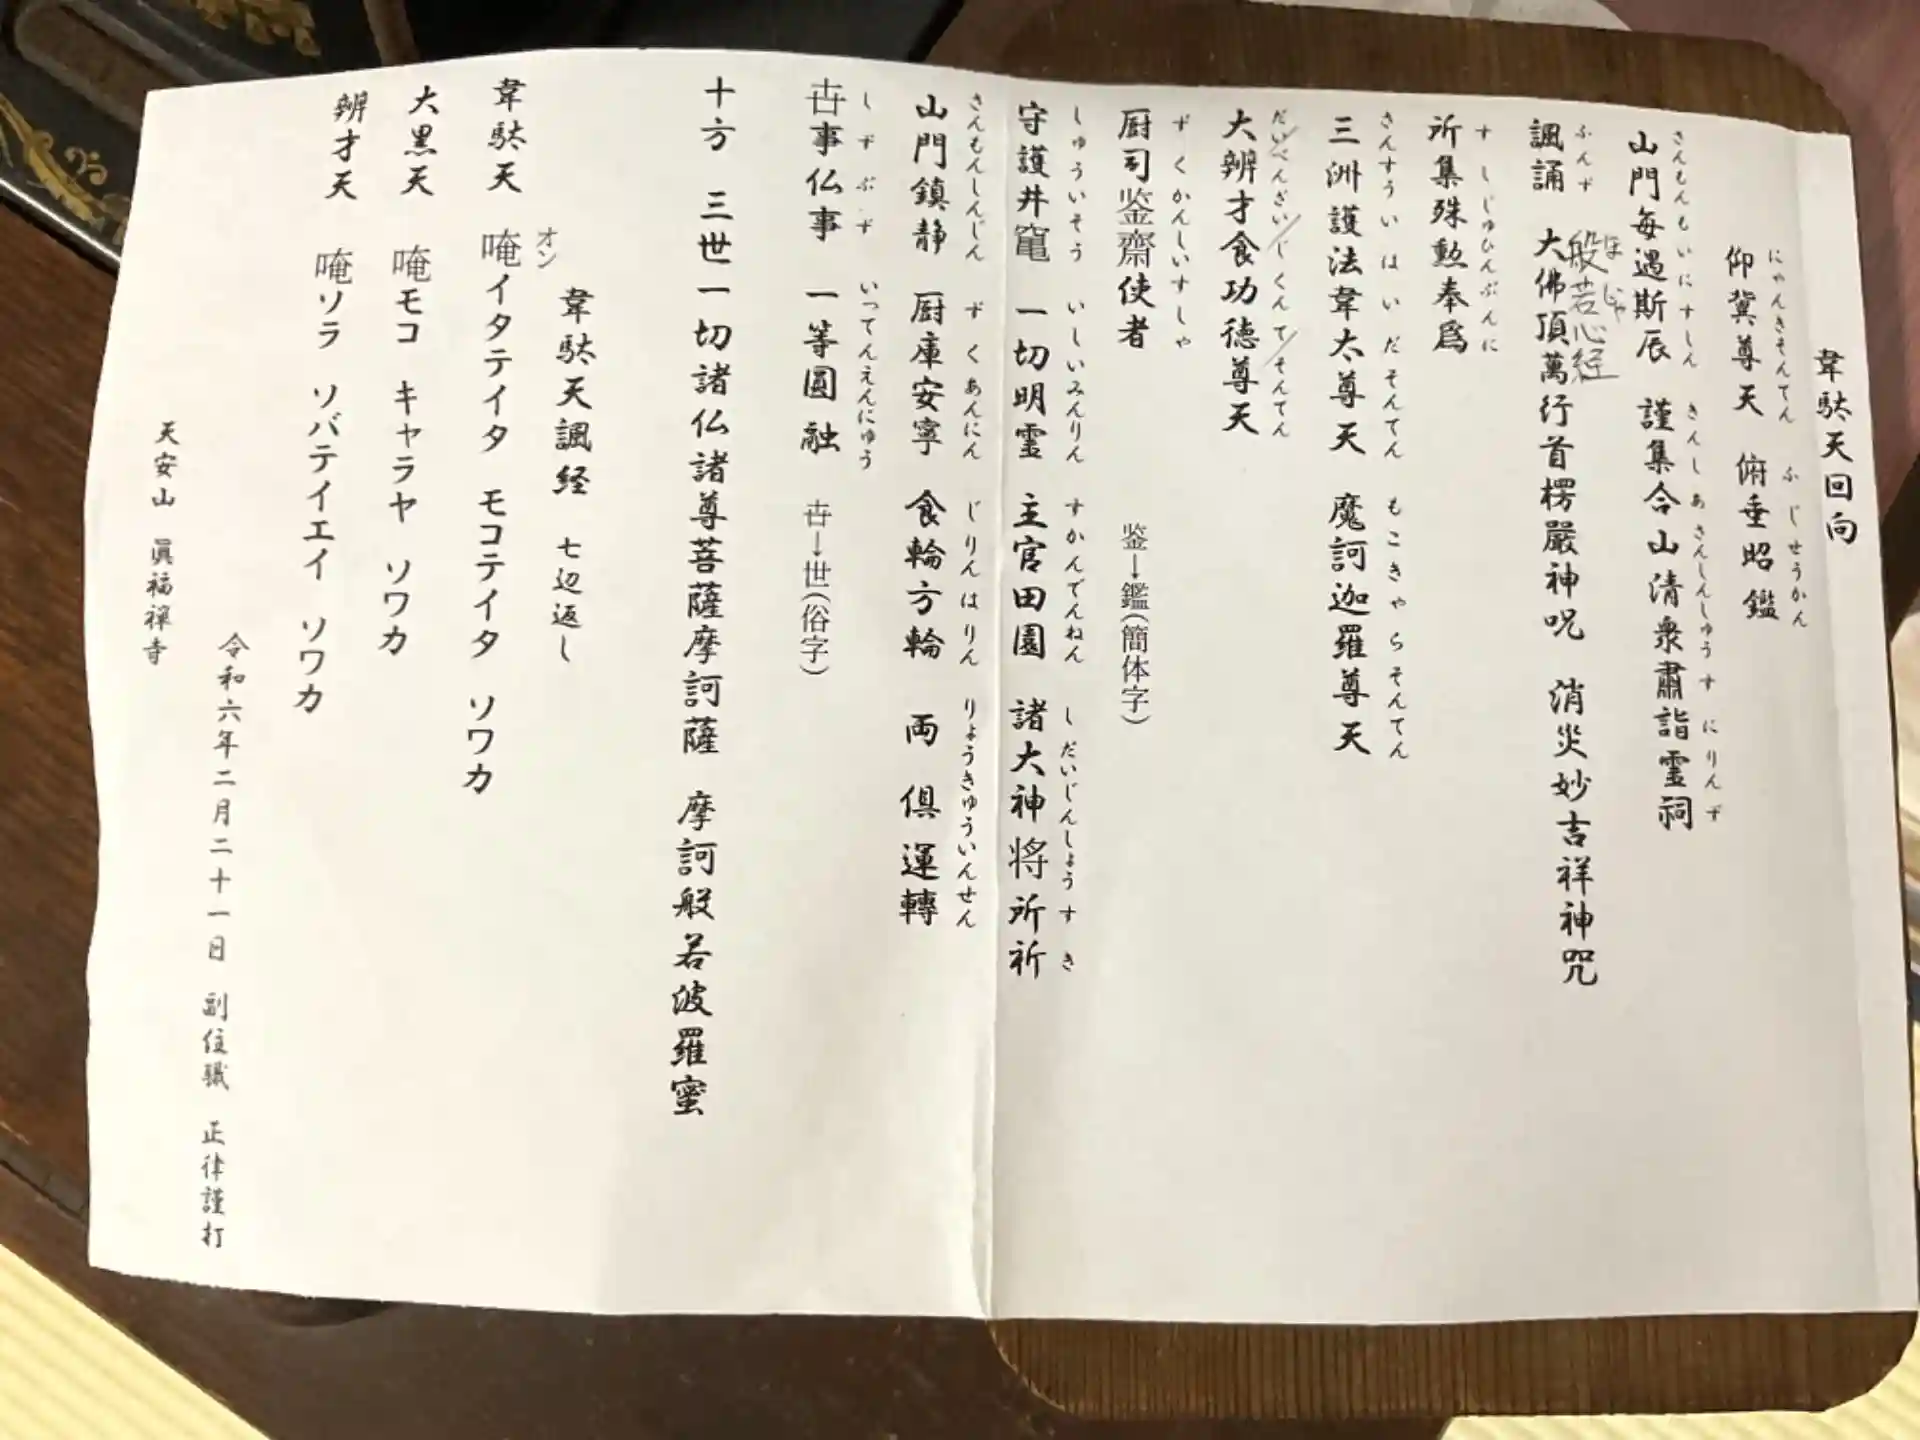 韋駄天回向
にゃんきそんてん　ふじせうかん
仰冀尊天　俯垂昭鑑
さんもんもいにすしん　きんしあさんしんしゅうすにりんず
山門毎遇斯辰　謹集合山清衆肅詣霊祠
ふんず
諷誦　大佛頂萬行首楞嚴神呪　消災妙吉祥神咒
般若心経
はじゃ
すしじゅひんぶんに
所集殊勲奉爲
さんすういはいだそんてん　もこきゃらそんてん
三洲護法韋太尊天　魔訶迦羅尊天
だいべんざい/じくんて/そんてん
大辨才食功徳尊天
ずくかんしいすしゃ
厨司鉴齋使者　鉴→鑑(簡体字)
しゅういそう　いしいみんりん　すかんでんねん　しだいじんしょうすき
守護井竃　一切明霊　主官田園　諸大神将所祈
さんもんしんじん　ずくあんにん　じりんはりん　りょうきゅういんせん
山門鎮静　厨庫安寧　食輪方輪　両俱運轉
しずぶず　いってんえんにゅう
卋事仏事　一等圓融　卋→世(俗字)
十方　三世一切諸仏諸尊菩薩摩訶薩　摩訶般若波羅蜜
韋駄天諷経　七辺返し
オン
韋駄天　唵イタテイタ　モコテイタ　ソワカ
大黒天　唵モコ　キャラヤ　ソワカ
辨才天　唵ソラ　ソバテイエイ　ソワカ
令和六年二月二十一日　副住職　正律謹打
天安山　眞福禅寺